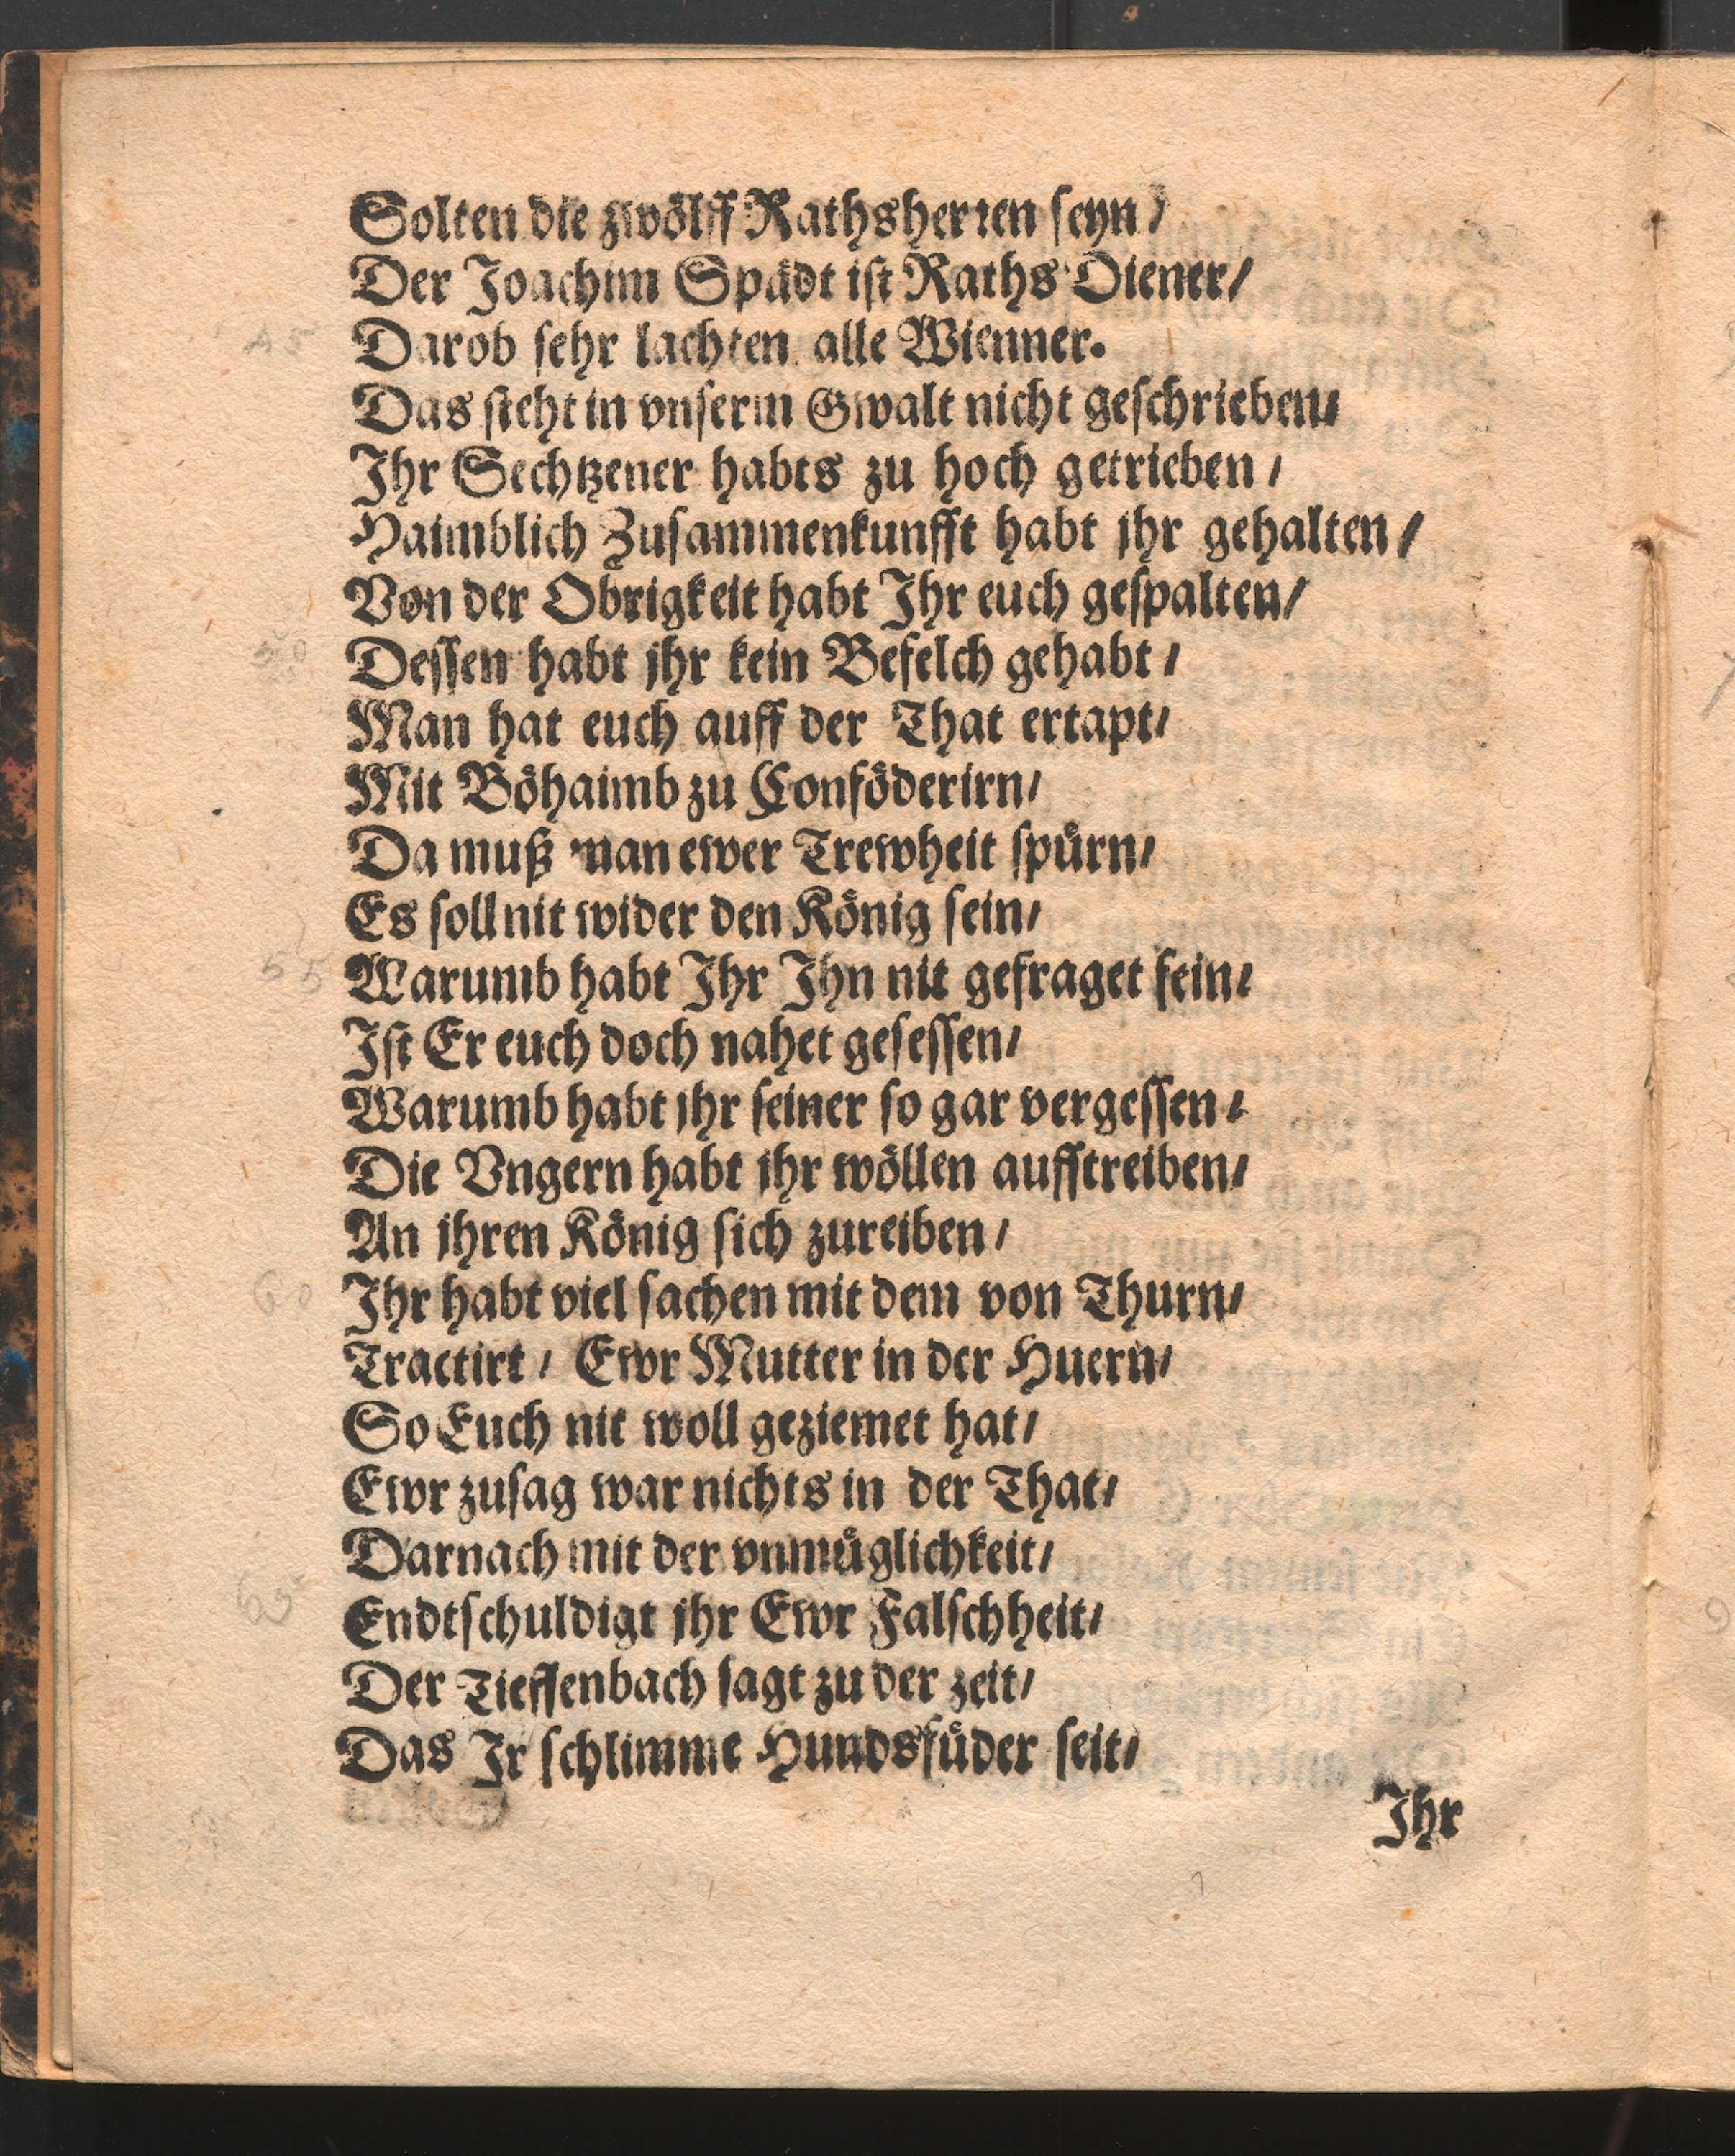 Solten die zwölff Rathsherren seyn/
Der Joachim Spädt ist Raths Diener/
45 Darob sehr lachten alle Wienner.
Das steht in vnserm Gwalt nicht geschrieben/
Ihr Sechtzener habts zu hoch getrieben/
Haimblich Zusammenkunfft habt jhr gehalten/
Von der Obrigkeit habt Ihr euch gespalten/
50 Dessen habt jhr kein Befelch gehabt/
Man hat euch auff der That ertapt/
Mit Böhaimb zu Conföderirn/
Da muß man ewer Trewheit spürn/
Es soll nit wider den König sein/
55 Warumb habt Ihr Ihn nit gefraget fein/
Ist Er euch doch nahet gesessen/
Warumb habt jhr seiner so gar vergessen/
Die Vngern habt jhr wöllen auffstreiben/
An jhren König sich zureiben/
60 Ihr habt viel sachen mit dem von Thurn/
Tractirt/ Ewr Mutter in der Huern/
So Euch nit woll geziemet hat/
Ewr zusag war nichts in der That/
Darnach mit der vnmüglichkeit/
65 Endtschuldigt jhr Ewr Falschheit/
Der Tieffenbach sagt zu der zeit/
Das Ir schlimme Hundsfüder seit/
Ihr